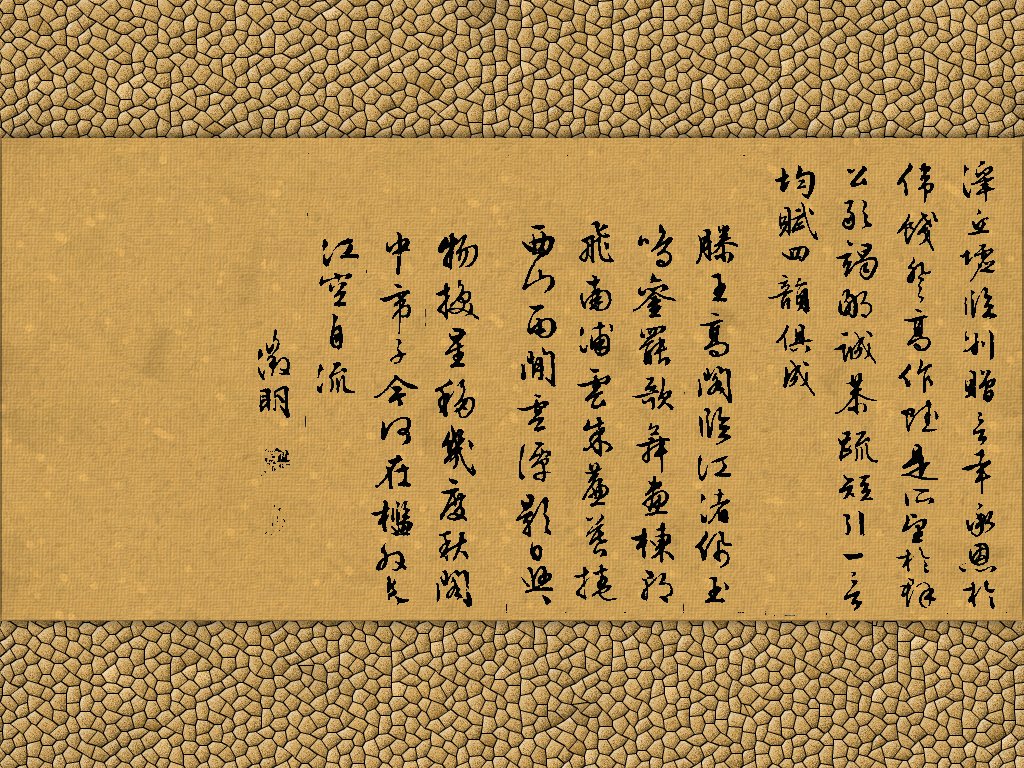 澤丘墟臨別贈言幸承恩於
偉餞登高作賦是所望於群
公敢竭鄙誠恭疏短引一言
均賦四韻俱成
滕王高閣臨江渚佩玉
鳴鑾罷歌舞畫棟朝
飛南浦雲朱簾暮捲
西山雨閒雲潭影日悠悠
物換星移幾度秋閣
中帝子今何在檻外長
江空自流
徵明